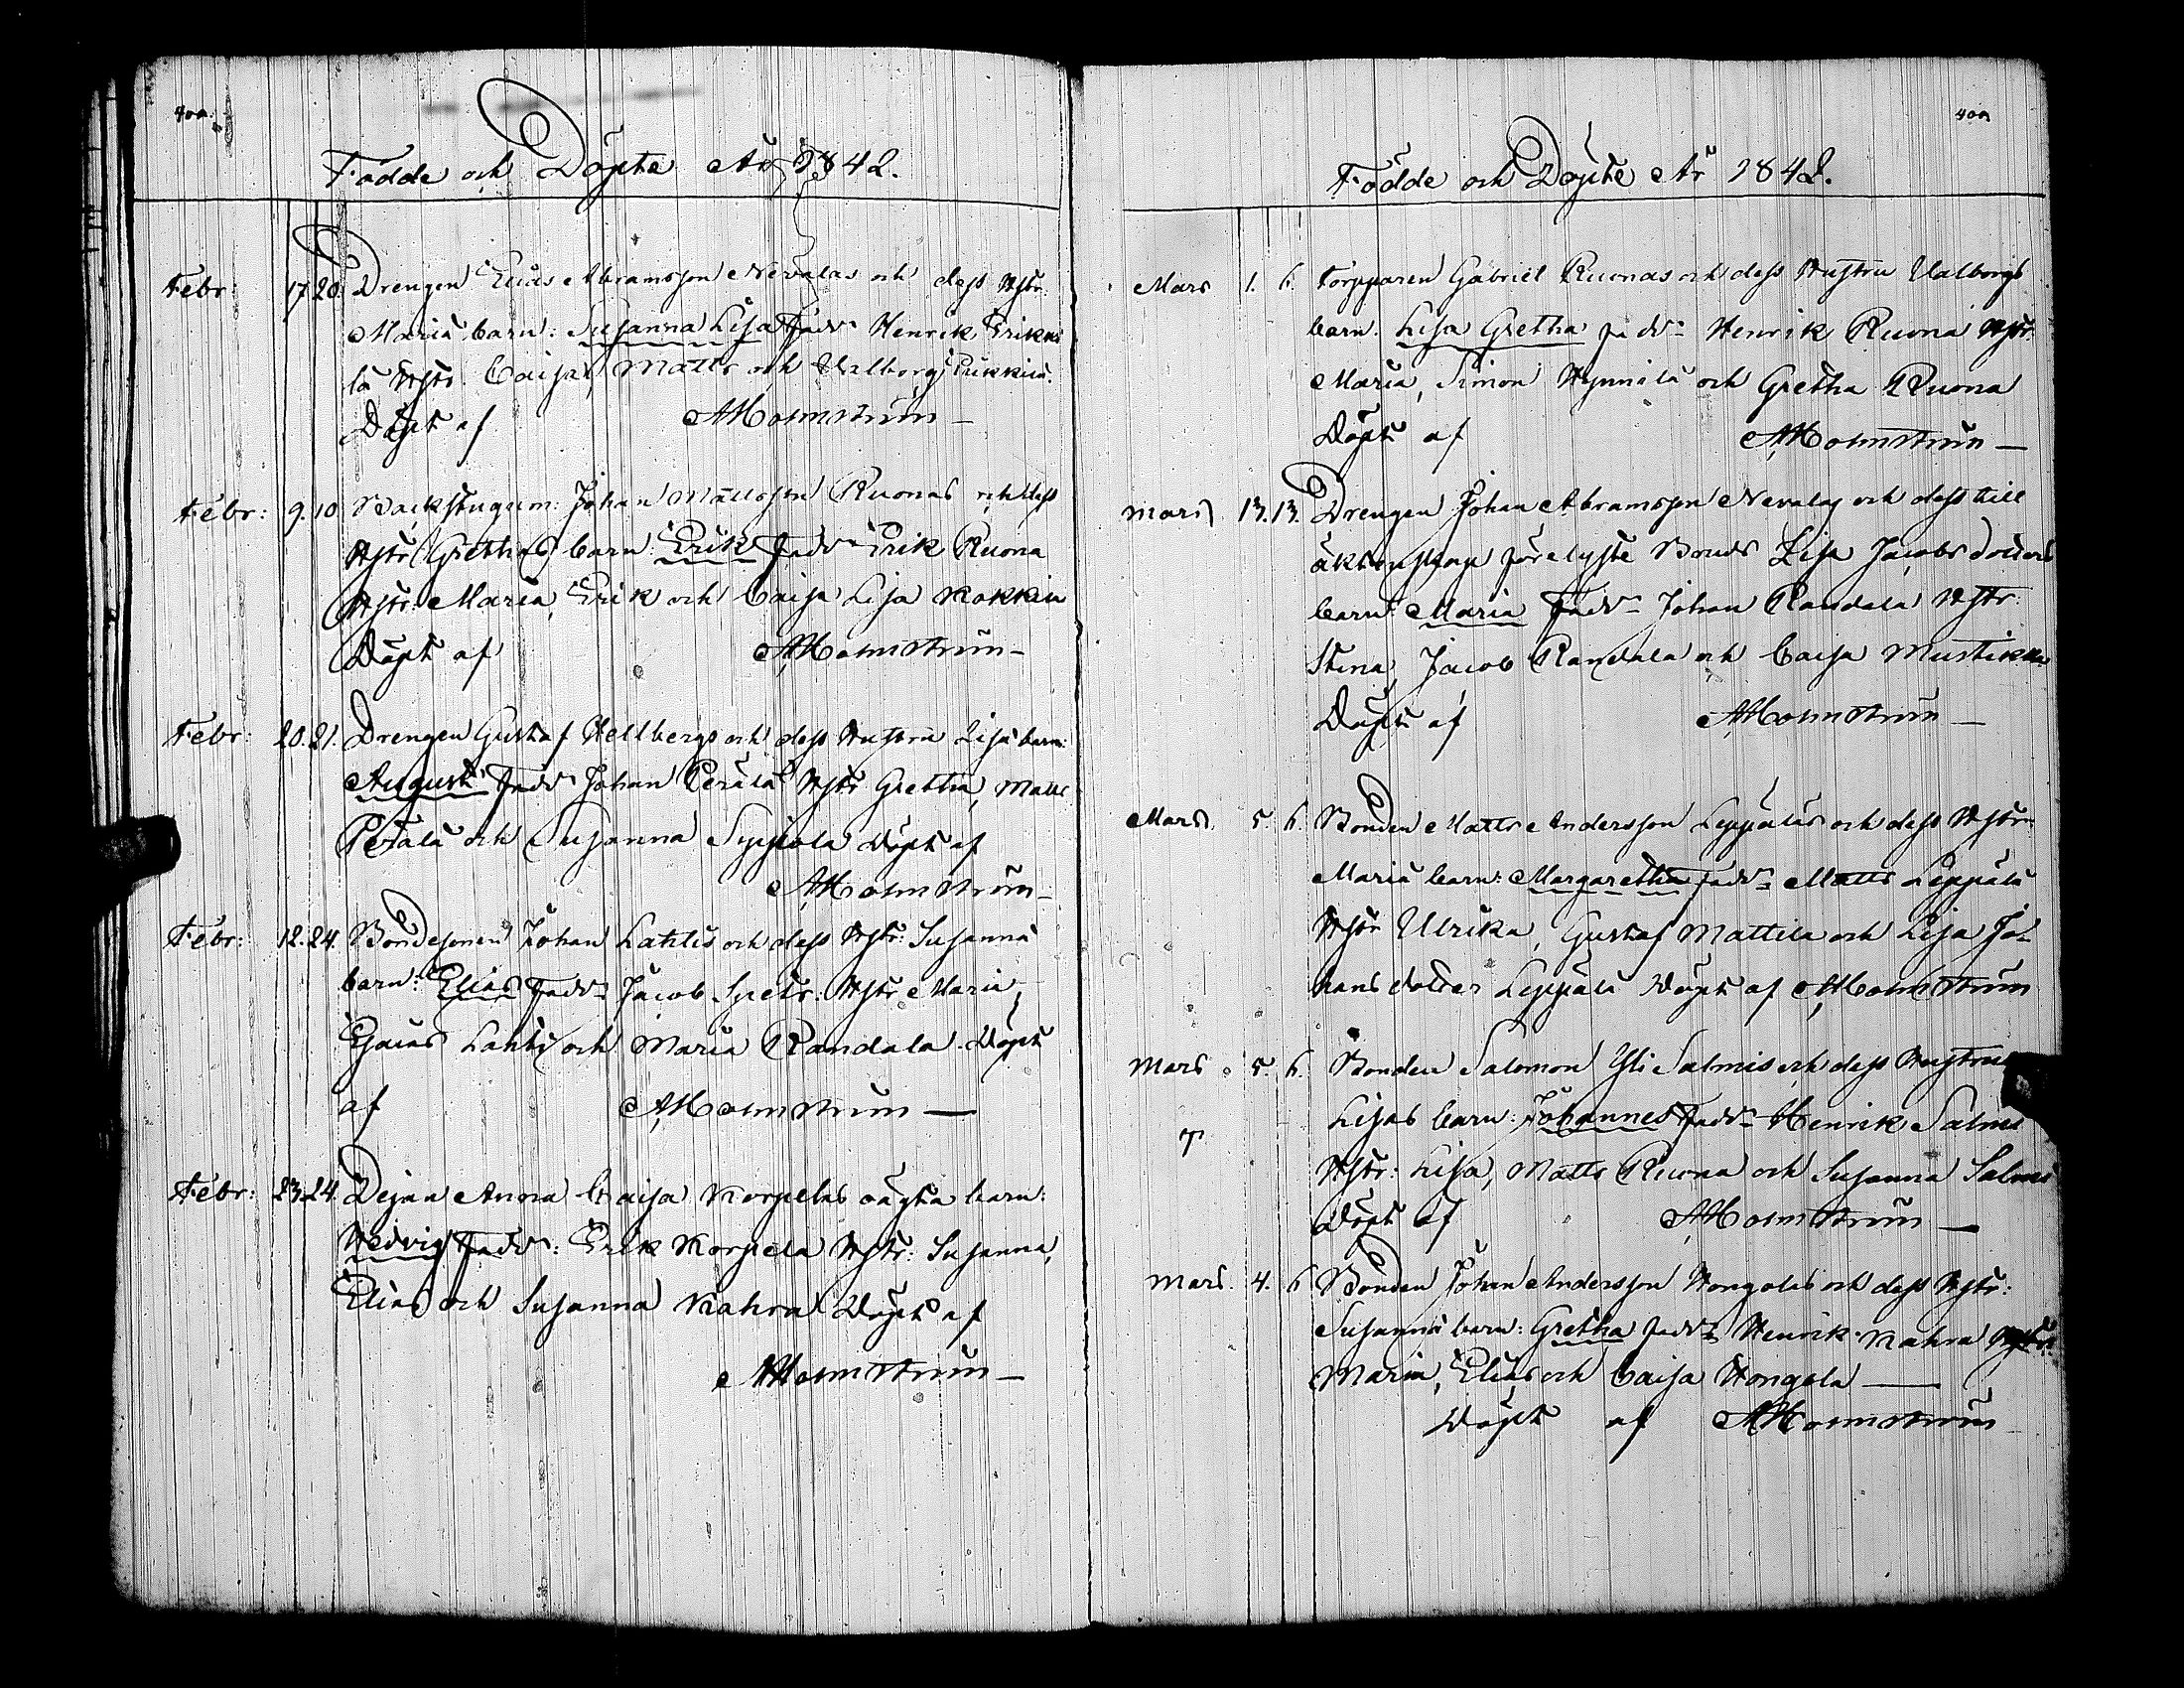 Födde och Döpte År 1842.
Febr: 17. 20. Drengen Elias Abramsson Nevalas och dess Hstr:
Maria barn: Susanna Lisa Fadd: Henrik Erikki
lä Hstr. Caisa, Matts och Valborg Erikkilä.
Döpt af AHolmström
Febr: 9. 10 Backstugum: Johan Mattsson Ruonas och dess
Hstr: Grethas barn: Erik Fadd: Erik Ruona
Hstr: Maria, Erik och Caisa Lisa Kokkila
Döpt af AHolmström
Febr: 20. 21. Drengen Gustaf Hellbergs och dess Hustru Lisa barn:
August Fadd: Johan Perälä Hstr Gretha, Matts
Perälä och Susanna Syrjölä Döpt af
AHolmström
Febr: 12. 24. Bondesonen Johan Lahtis och dess Hstr: Susanna
barn: Elias Fadd: Jacob Hstr: Maria,
Esaias Lahti och Maria Randala. Döpt
af AHolmström
Febr: 23. 24. Dejan Anna Caisa Korpelas oägta barn:
Hedvig Fadd: Erik Korpela Hstr: Susanna,
Elias och Susanna Kahra Döpt af
AHolmström
Födde och Döpte År 1842.
Mars 1. 6. Torpparen Gabriel Ruonas och dess Hustru Valborgs
barn: Lisa Gretha Fadd: Henrik Ruona Hstr:
Maria, Simon Hynnilä och Gretha Ruona
Döpt af AHolmström
Mars 13. 13. Drengen Johan Abramsson Nevalas och dess till
äktenskap förelyste Bruds Lisa Jacobsdotters
barn: Maria Fadd: Johan Randala Hstr:
Stina, Jacob Randala och Caisa Mustikka
Döpt af AHolmström
Mars 5. 6. Bonden Matts Andersson Leppäläs och dess Hstr:
Maria barn: Margaretha Fadd: Matts Leppälä
Hstr Ulrika, Gustaf Mattila och Lisa Jo-
hansdotter Leppälä Döpt af AHolmström
Mars 5. 6. Bonden Salomon Yli Salmis och dess Hustrus
Lisas barn: Johannes Fadd: Henrik Salmi
Hstr: Lisa, Matts Ruona och Susanna Salmi
Döpt af AHolmström
Mars 4. 6 Bonden Johan Andersson Hongolas och dess Hstr:
Susanna barn: Gretha Fadd: Henrik Kahra Hstr:
Maria, Elias och Caisa Hongola
Döpt af AHolmström